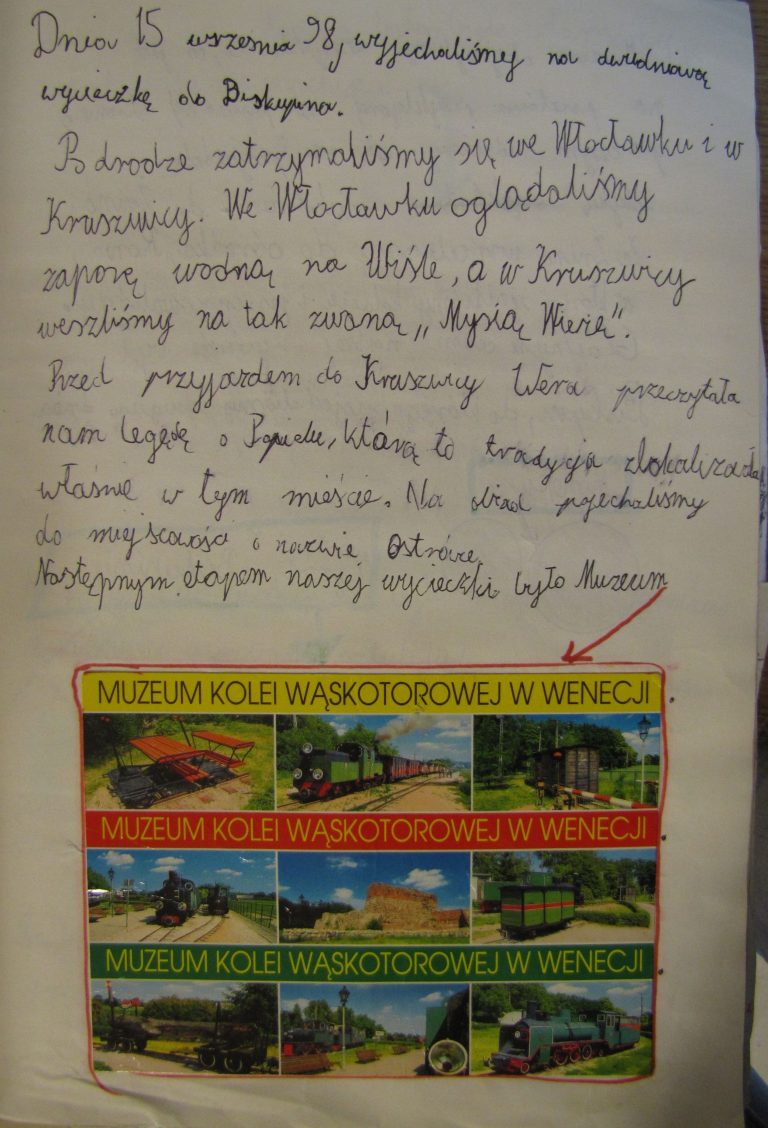 Dnia 15 września 98, wyjechaliśmy na dwudniową
wycieczkę do Biskupina.
Po drodze zatrzymaliśmy się we Włocławku i w
Kruszwicy. We Włocławku oglądaliśmy
zaporę wodną na Wiśle, a w Kruszwicy
weszliśmy na tak zwaną „Mysią Wieżę”.
Przed przyjazdem do Kruszwicy Wera przeczytała
nam legędę o Popielu, którą to tradycja zlokalizowała
właśnie w tym mieście. Na obiad pojechaliśmy
do miejscowości o nazwie
Następnym etapem naszej wycieczki było Muzeum
MUZEUM KOLEI WĄSKOTOROWEJ W WENECJI
MUZEUM KOLEI WĄSKOTOROWEJ W WENECJI
MUZEUM KOLEI WĄSKOTOROWEJ W WENECJI